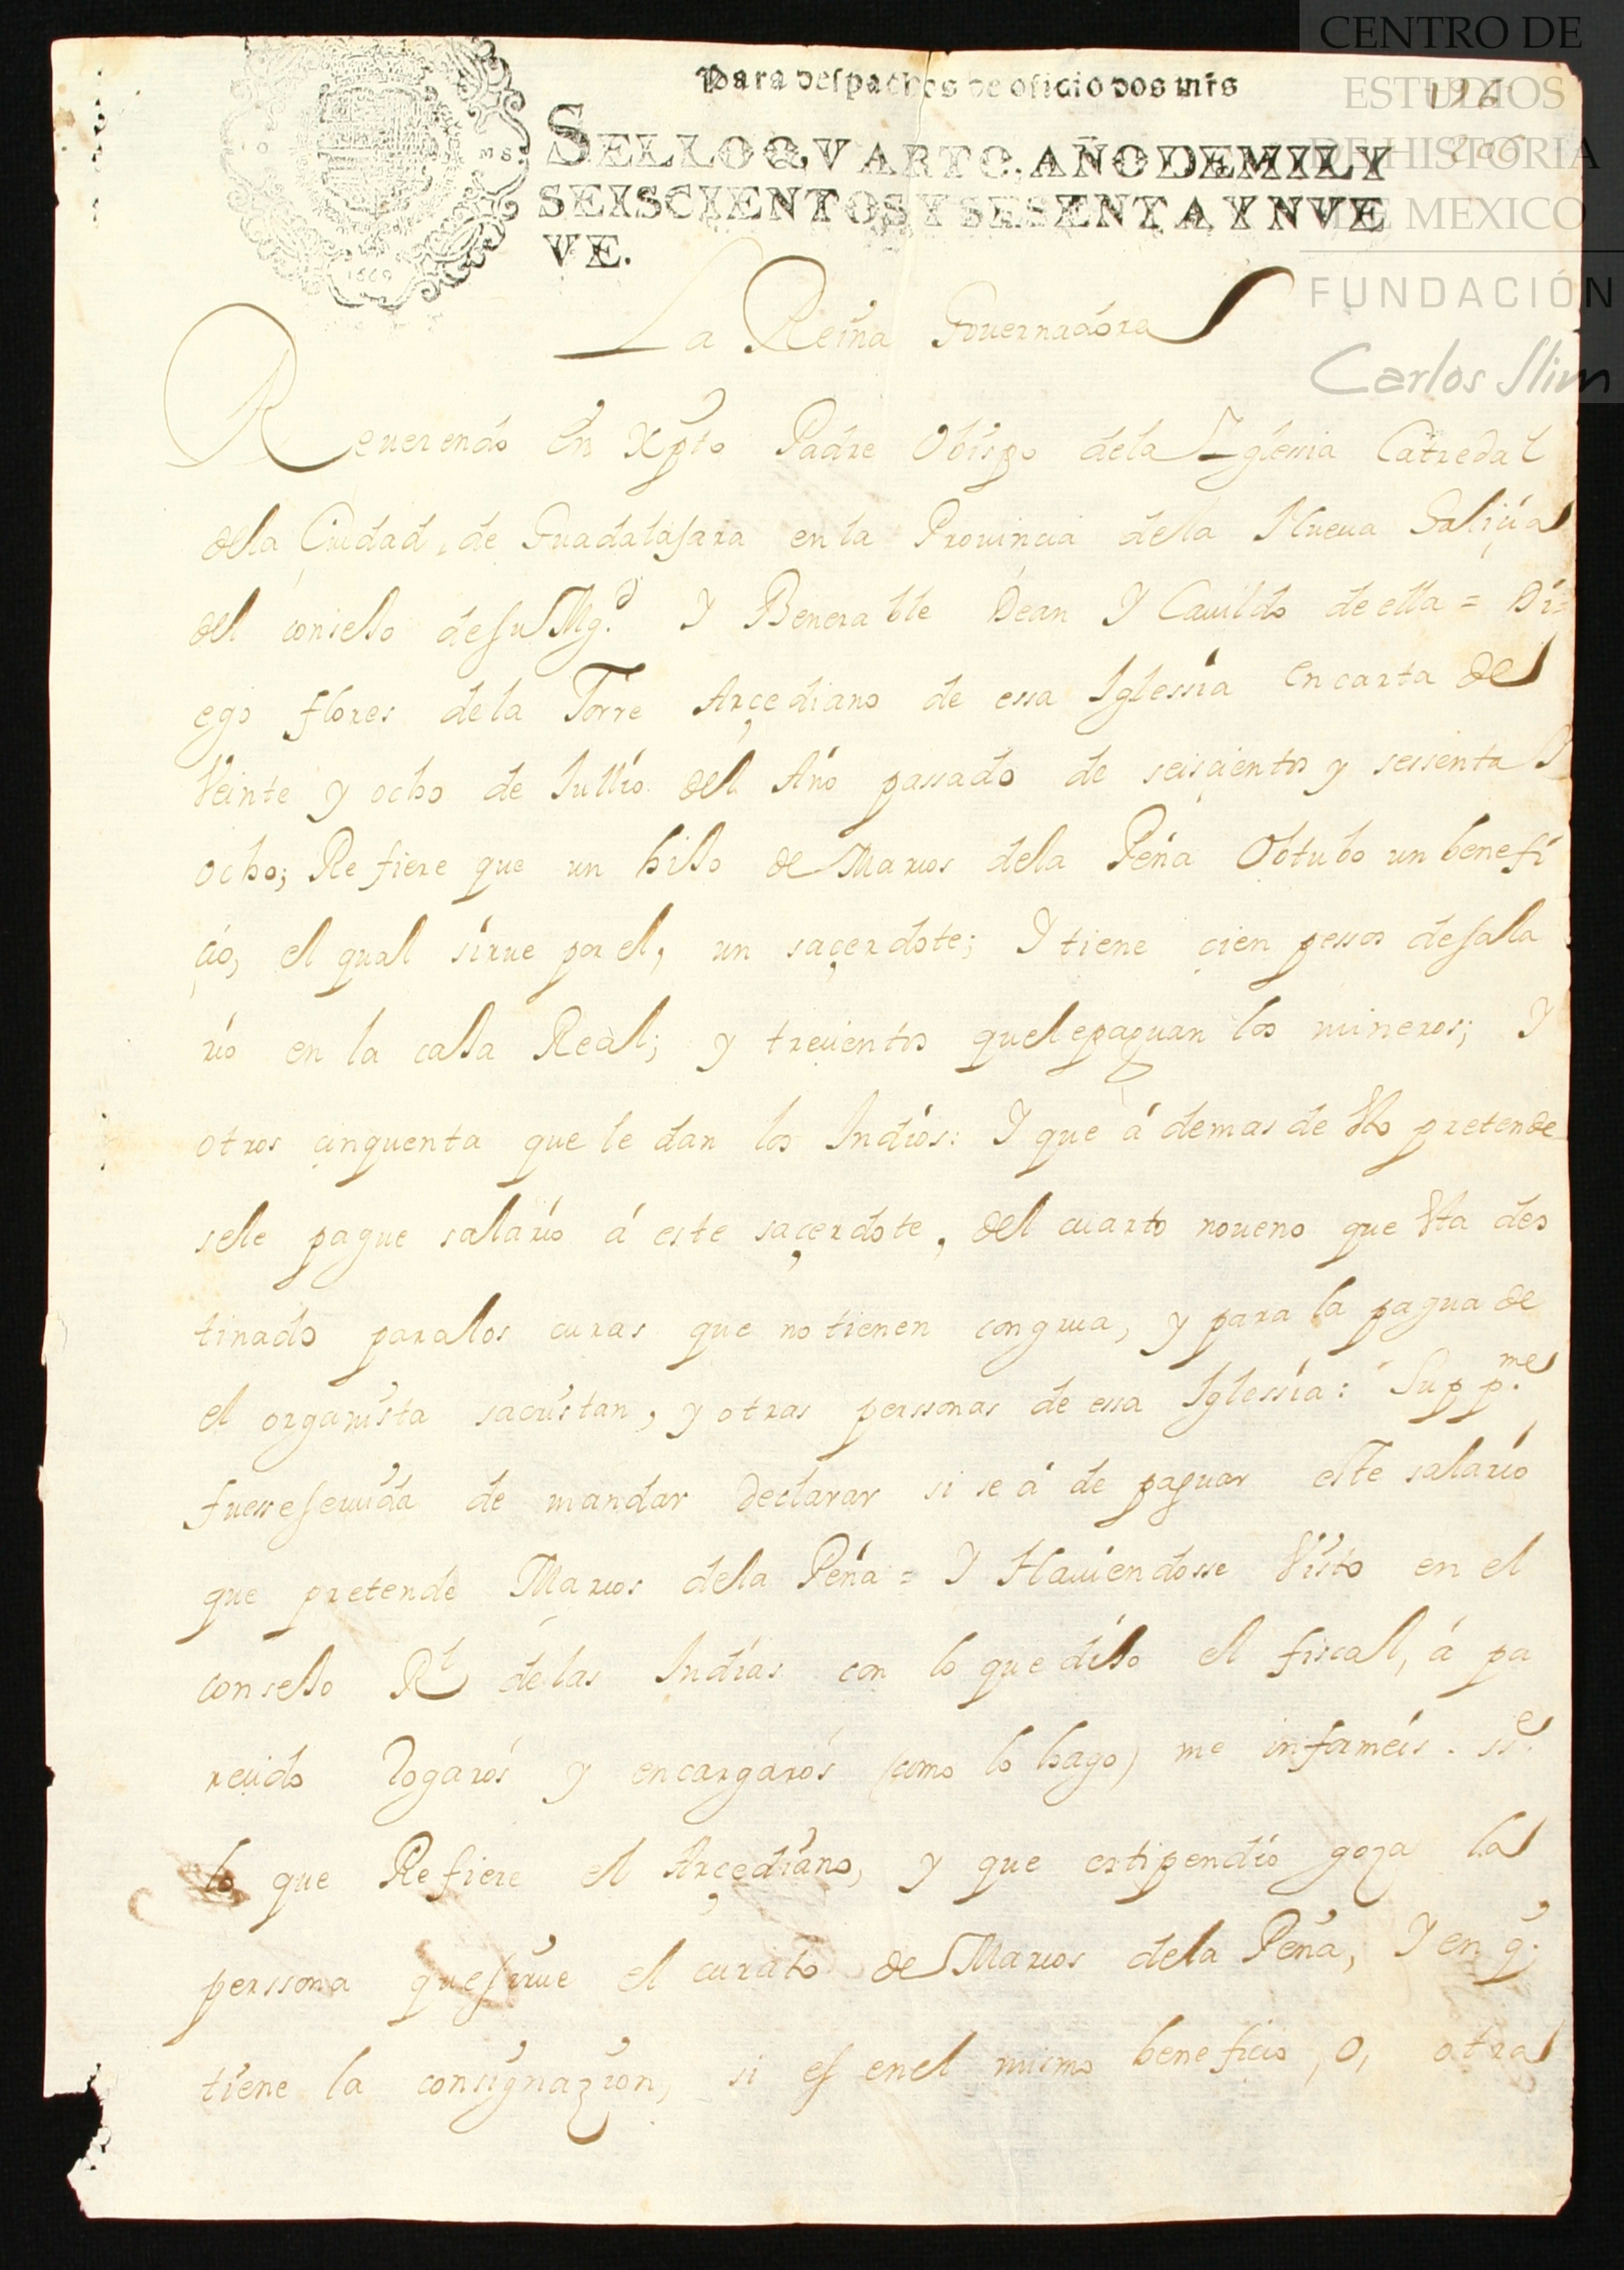 Para despachos de oficio dos mrs
SELLO QVARTO, AÑO DE MIL Y
SEISCIENTOS Y SESENTA Y NVE
VE.
1669
CENTRO DE
ESTUDIOS
DE HISTORIA
DE MEXICO
FUNDACIÓN
Carlos Slim
La Reina Governadora
Reuerendo En Xpto Padre Obispo dela Iglessia Catredal
dela Ciudad, de Guadalajara en la Prouinçia dela Nueua Galiçia
del consejo de su Mg.d Y Benerable Dean Y Cauildo de ella = Di=
ego flores dela Torre Arçediano de essa Iglessia en carta de
Veinte y ocho de Jullio del Año passado de seisçientos y sessenta Y
ocho; Refiere que un hijo de Marcos dela Peña Obtubo un benefi
çio, el qual sirue por el, un saçerdote; Y tiene çien pessos de sala
rio en la caja Real; y treçientos que le paguan los mineros; Y
otros çinquenta que le dan los Indios: Y que á demas de Sto pretende
se le pague salario á este saçerdote, del cuarto noueno que Sta des
tinado para los curas que no tienen congrua, y para la pagua de
el organista sacristan, y otras perssonas de essa Iglessia: Supp.me
fuesse seruida de mandar declarar si se á de paguar este salario
que pretende Marcos dela Peña = Y Hauiendosse Visto en el
consejo Rl de las Indias con lo que dijo el fiscal, á pa
reçido Rogaros y encargaros (como lo hago) me informeis. ss.e
lo que Refiere el Arçediano, y que estipendio goza la
perssona que sirue el curato de Marcos dela Peña, Y en q.
tiene la consignazion, si es en el mismo beneficio, o, otra